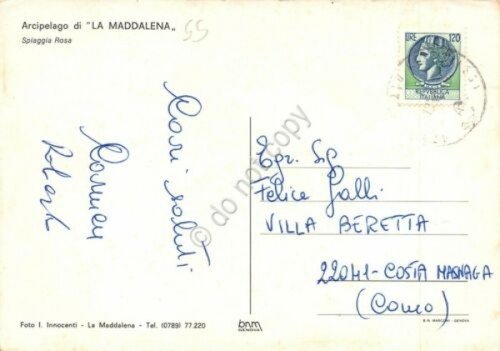 Arcipelago di "LA MADDALENA"
Spiaggia Rosa
55
LIRE 120
REPUBBLICA
ITALIANA
Cari saluti
Carmen
Robert
© do not copy
Egr. Sig
Felice Galli
VILLA BERETTA
22041-COSTA MASNAGA
(Como)
Foto I. Innocenti - La Maddalena - Tel. (0789) 77.220
bnm
GENOVA
B.N. MARCONI - GENOVA